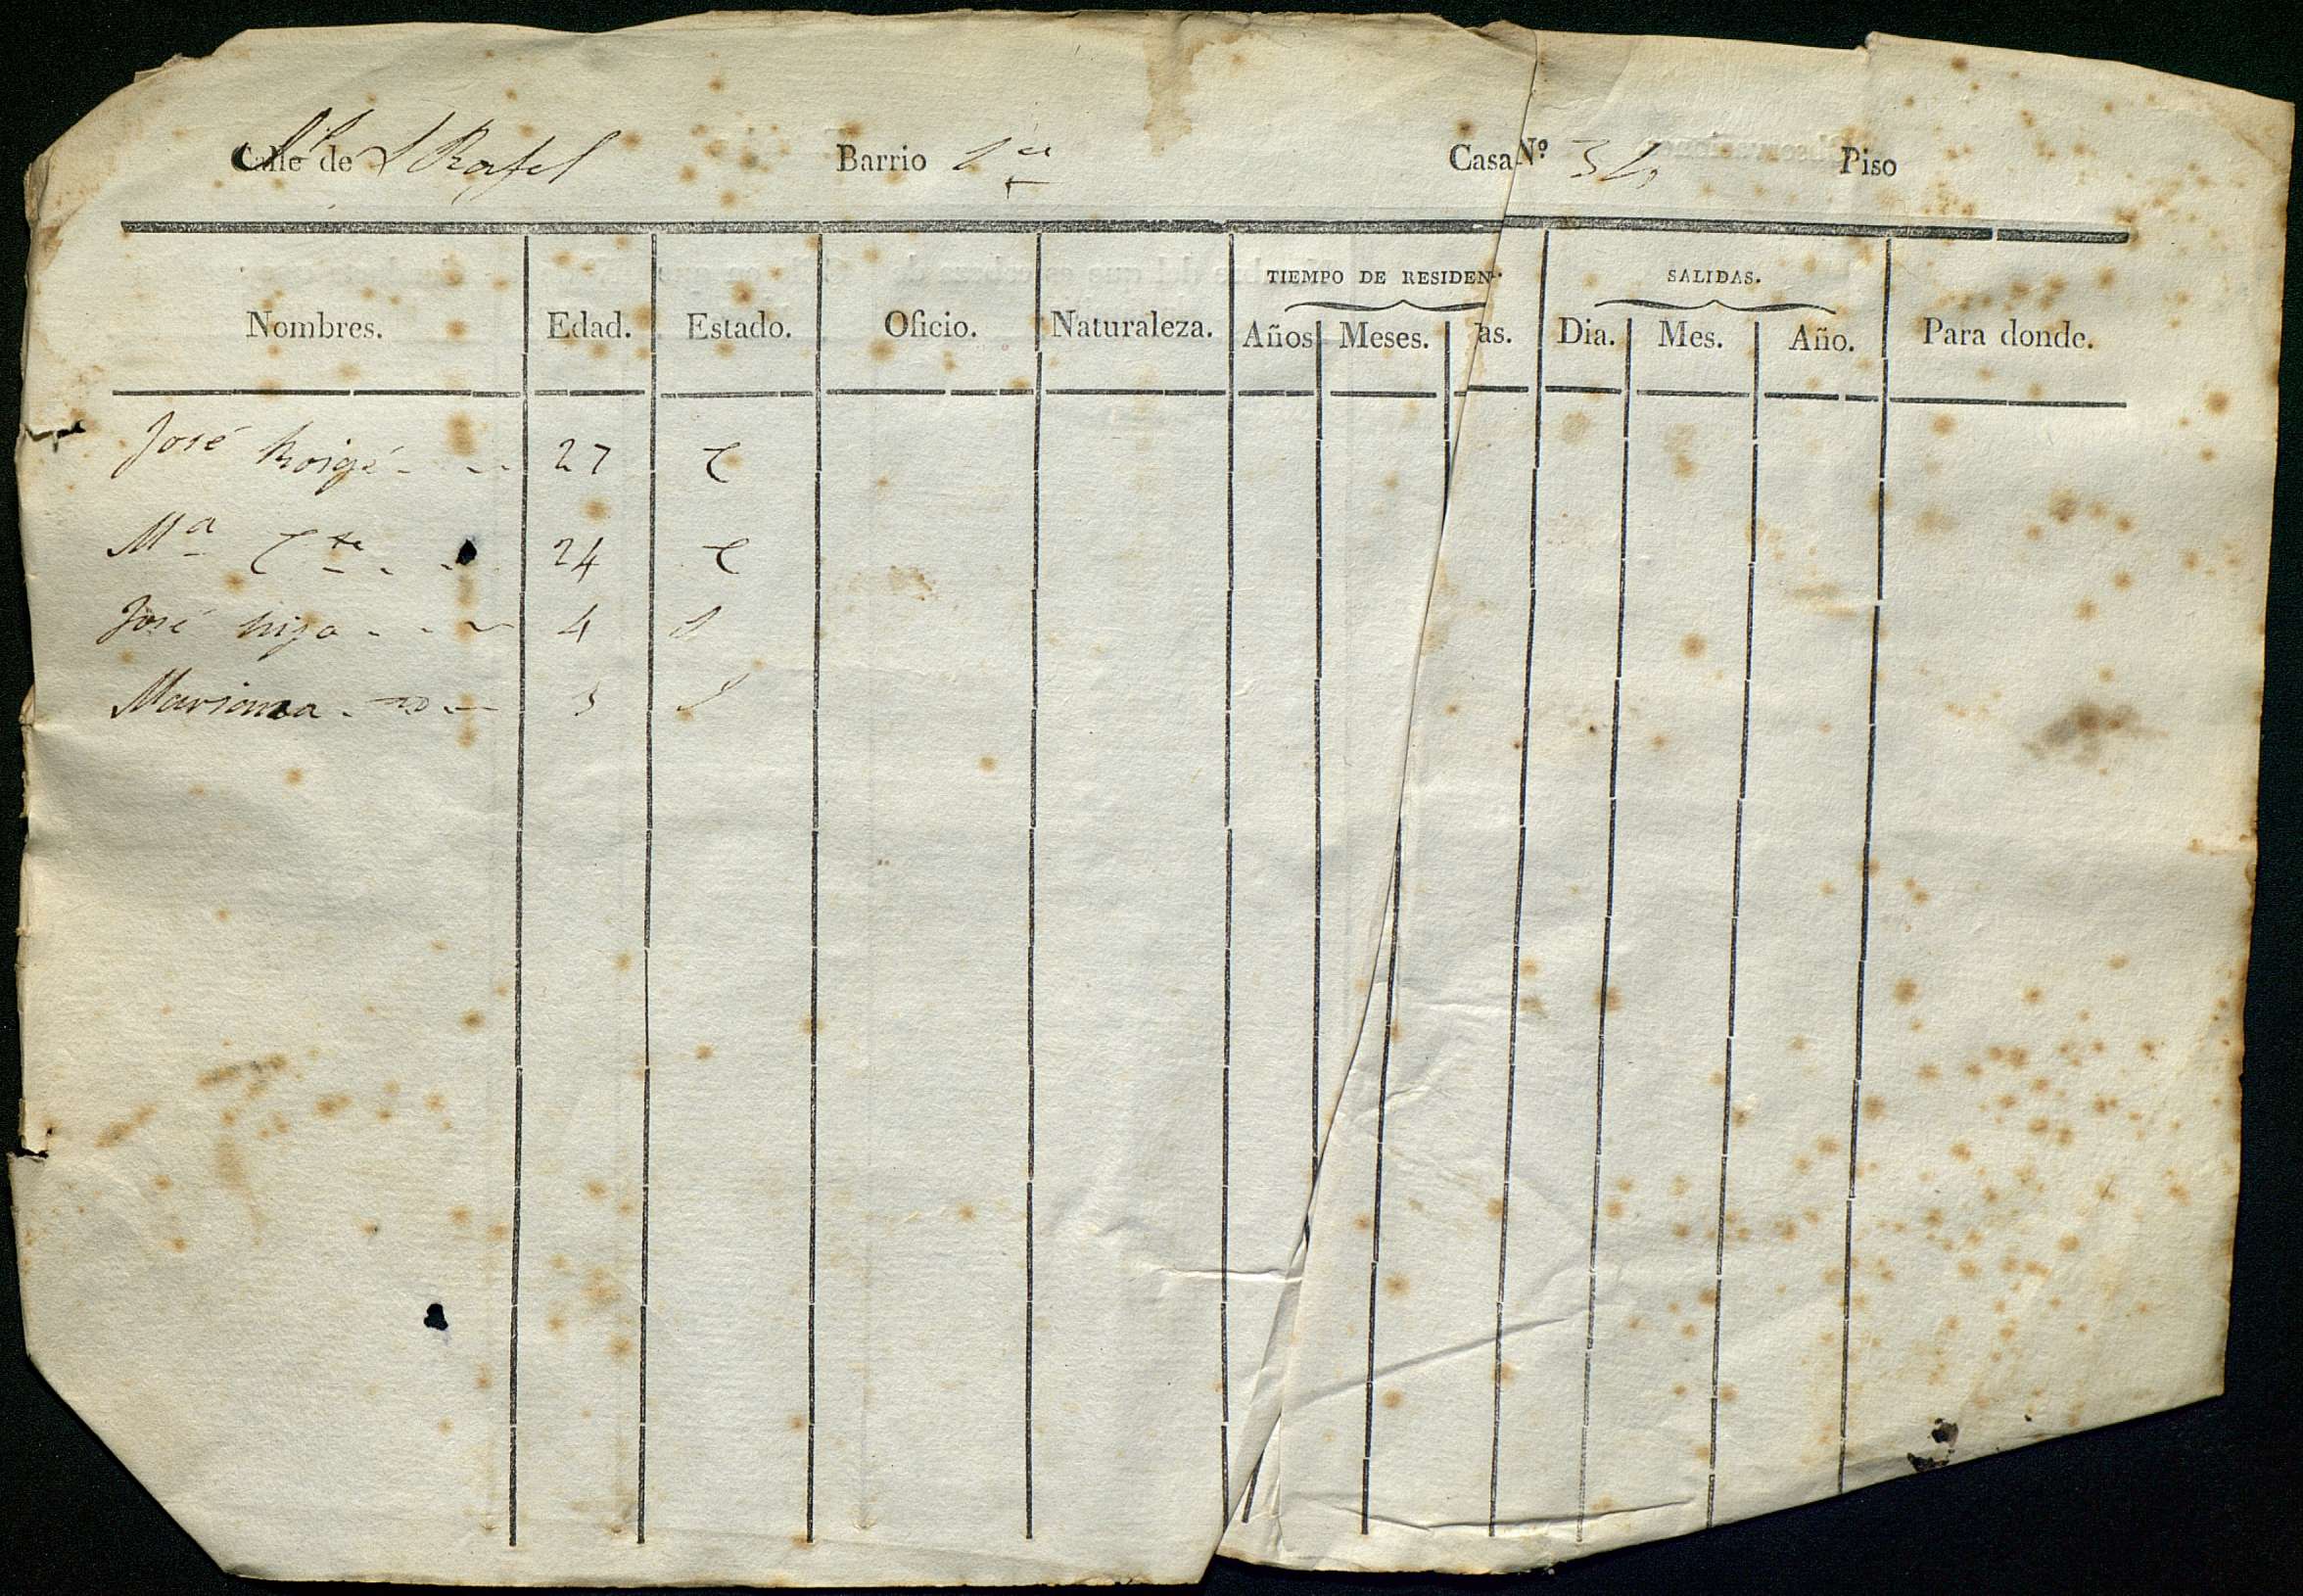 Calle de S Rafel Barrio 1º Casa Nº 34 Piso
TIEMPO DE RESIDEN SALIDAS.
Nombres. Edad. Estado. Oficio. Naturaleza. Años Meses. as. Dia. Mes. Año. Para donde.
José Roigé 27 C
Mª 24 C
José hijo 4 S
Mariana 3 S